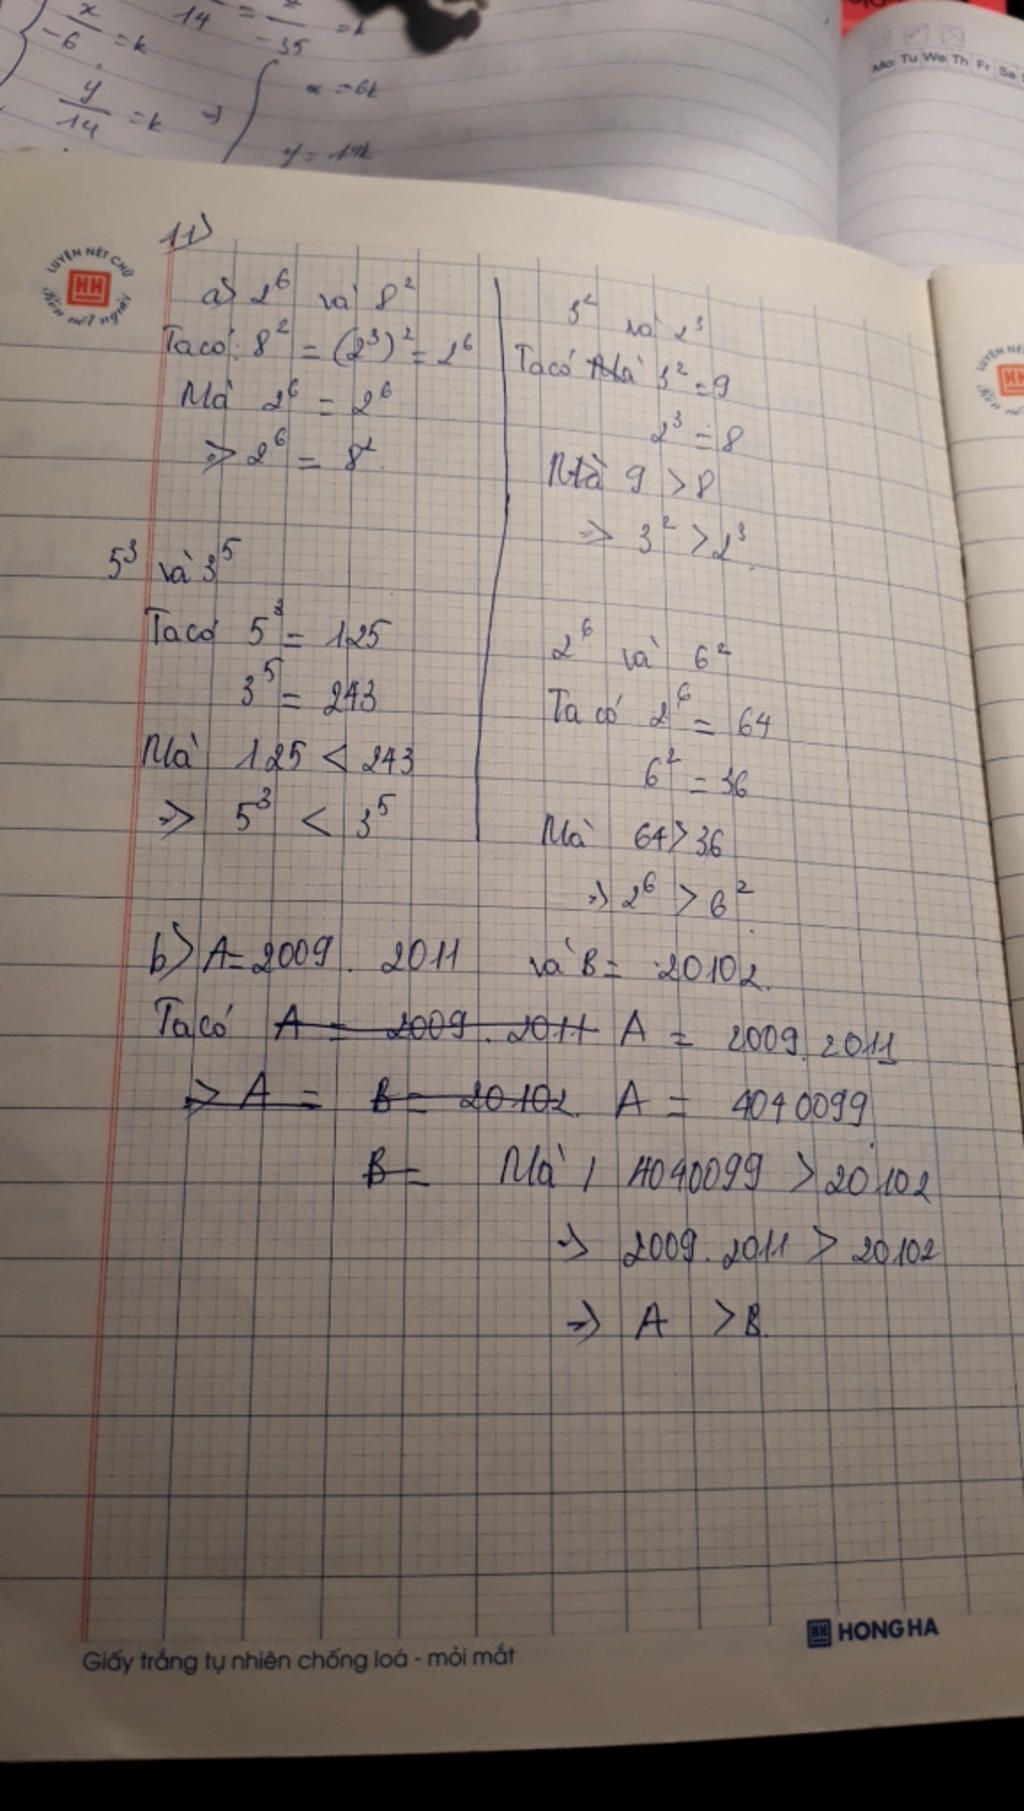 x/-6 = k
14 = -35 = k
y/14 = k => x = 6k
y = 14k
Mo Tu We Th Fr Sa
LUYỆN NÉT CHỮ
HH
Rèn nết người
11)
a) 2^6 và 8^2
Ta có: 8^2 = (2^3)^2 = 2^6
Mà 2^6 = 2^6
=> 2^6 = 8^2
3^2 và 2^3
Ta có Mà 3^2 = 9
2^3 = 8
Mà 9 > 8
=> 3^2 > 2^3
5^3 và 3^5
Ta có 5^3 = 125
3^5 = 243
Mà 125 < 243
=> 5^3 < 3^5
2^6 và 6^2
Ta có 2^6 = 64
6^2 = 36
Mà 64 > 36
=> 2^6 > 6^2
b) A = 2009 . 2011 và B = 20102.
Ta có A = 2009 . 2011 A = 2009 . 2011
=> A = B = 20102. A = 4040099
B = Mà 4040099 > 20102
=> 2009 . 2011 > 20102
=> A > B.
HH HONG HA
Giấy trắng tự nhiên chống loá - mỏi mắt